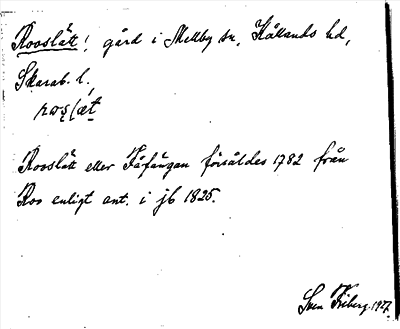 Rooslätt, gård i Mellby sn, Kållands hd,
Skarab. l.
Rooslätt eller Fåfängan försåldes 1782 från
Roo enligt ant. i jb 1825.
Sven Friberg. 1927.